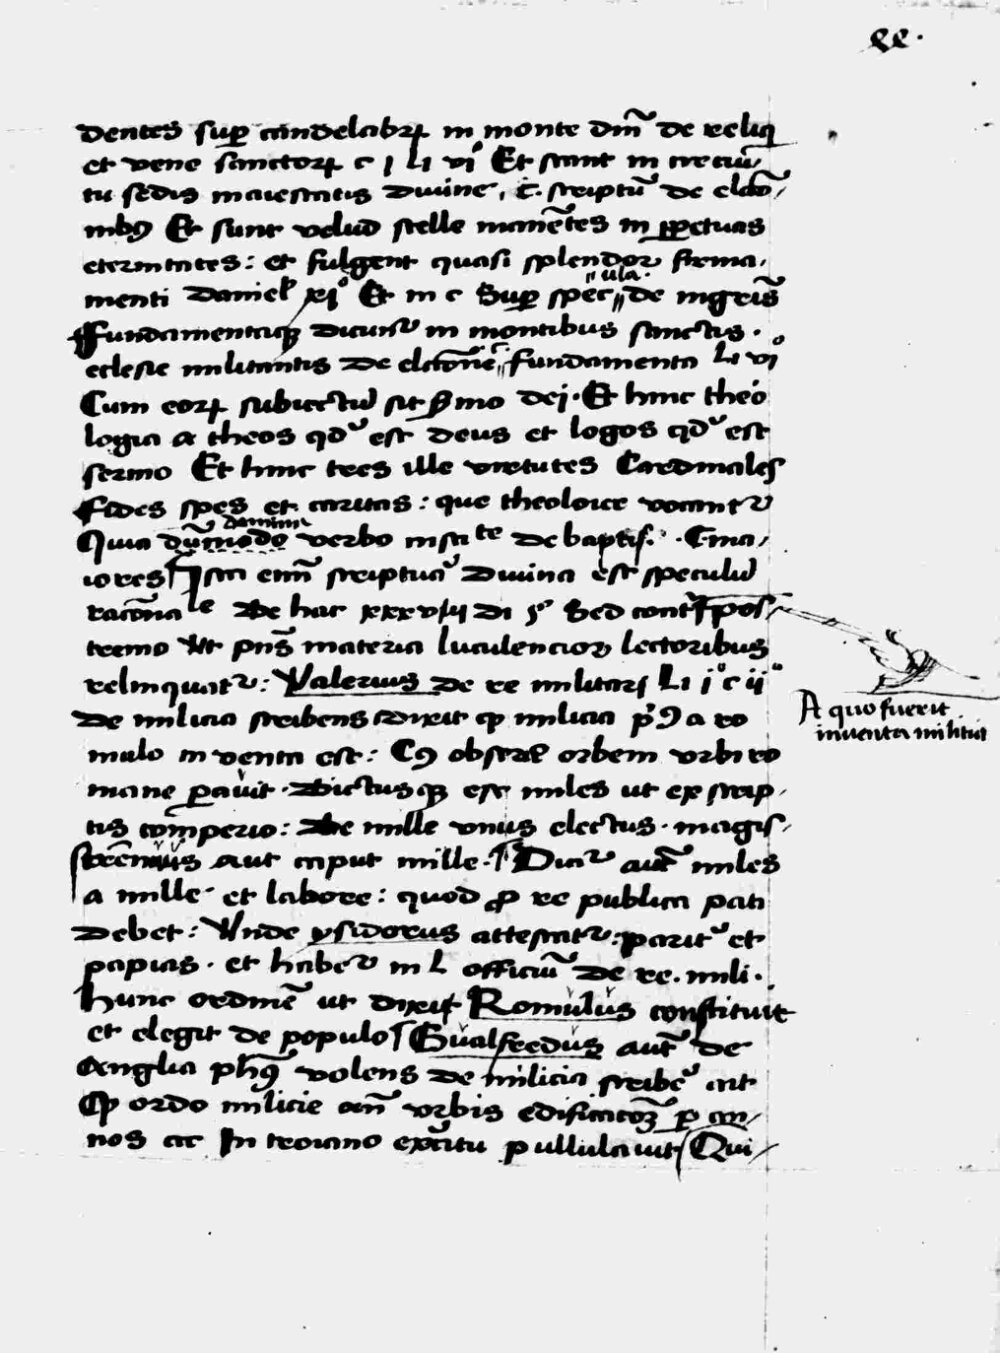 xx.
dentes sup candelabrꝝ in monte dm̄ de reliq
et vene sanctoꝝ c j Li vi Et stant in
tu sedis maiestatis divine, c. scriptū de elcō
nibꝰ Et sunt velud stelle manētes in ꝑpetuas
eternitates: et fulgent quasi splendor firma,
menti Daniel xiº Et in c Suꝑ specula de ingris̄
Fundamentaqꝫ dicunt in montibus sanctis.
eclesie militantis De elctōne c fundamenta Li viº
Cum eoꝝ subiectū sit ẜmo dei. Et hinc theo
logia a theos qd est deus et logos qd est
sermo Et hinc tres ille virtutes Cardinales
Fides spes et caritas: que theoloice vocant
Quia dūmodo verbo de baptis. C ma,
iores Ista eni scriptura divina est speculū
racōnale De hac xxxviij di §º Sed cont pos
tremo Ut pn̄s materia luculencior lectoribus
relinquat: Valerius de re militari Li jº c iiº
de milicia scribens dixit ꝙ milicia pꝰ a ro
mulo inventa est: Cꝰ orbem urbi ro
mane paravit. Dictusqꝫ est miles ut ex scrip,
tis comperio: De mille vnus electus. magis,
aut caput mille. Dicit aut miles
a mille. et labore: quod ꝓ re publica pati
debet: Unde ysidorus attestat: parit et
papias. et habet in L officiū de re. mili.
Hunc ordinē ut dixit Romulus constituit
et elegit de populo Gualfredus aut de
Anglia phūs volens de milicia scribe ait
ꝙ ordo milicie an̄ urbis edificacoꝫ ꝑ an,
nos cc In troiano excitu pullulavit Qui,
A quo fuerit
inventa militia